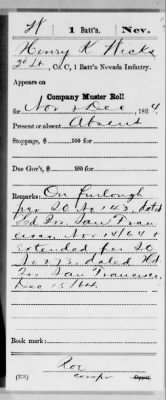 H 1 Batt'n. Nev.
Henry K Hicks
2d Lt, Co. C, 1 Batt'n Nevada Infantry.
Appears on
Company Muster Roll
for Nov & Dec, 1864.
Present or absent Absent
Stoppage, $ 100 for
Due Gov't, $ 100 for
Remarks: On furlough
per S.O. No 243, dated
Hd Qrs San Fran
cisco, Nov 14/64 &
extended per S.O.
No 273, dated Hd
Qrs San Francisco,
Dec 15/64.
Book mark:
(358) Copyist.